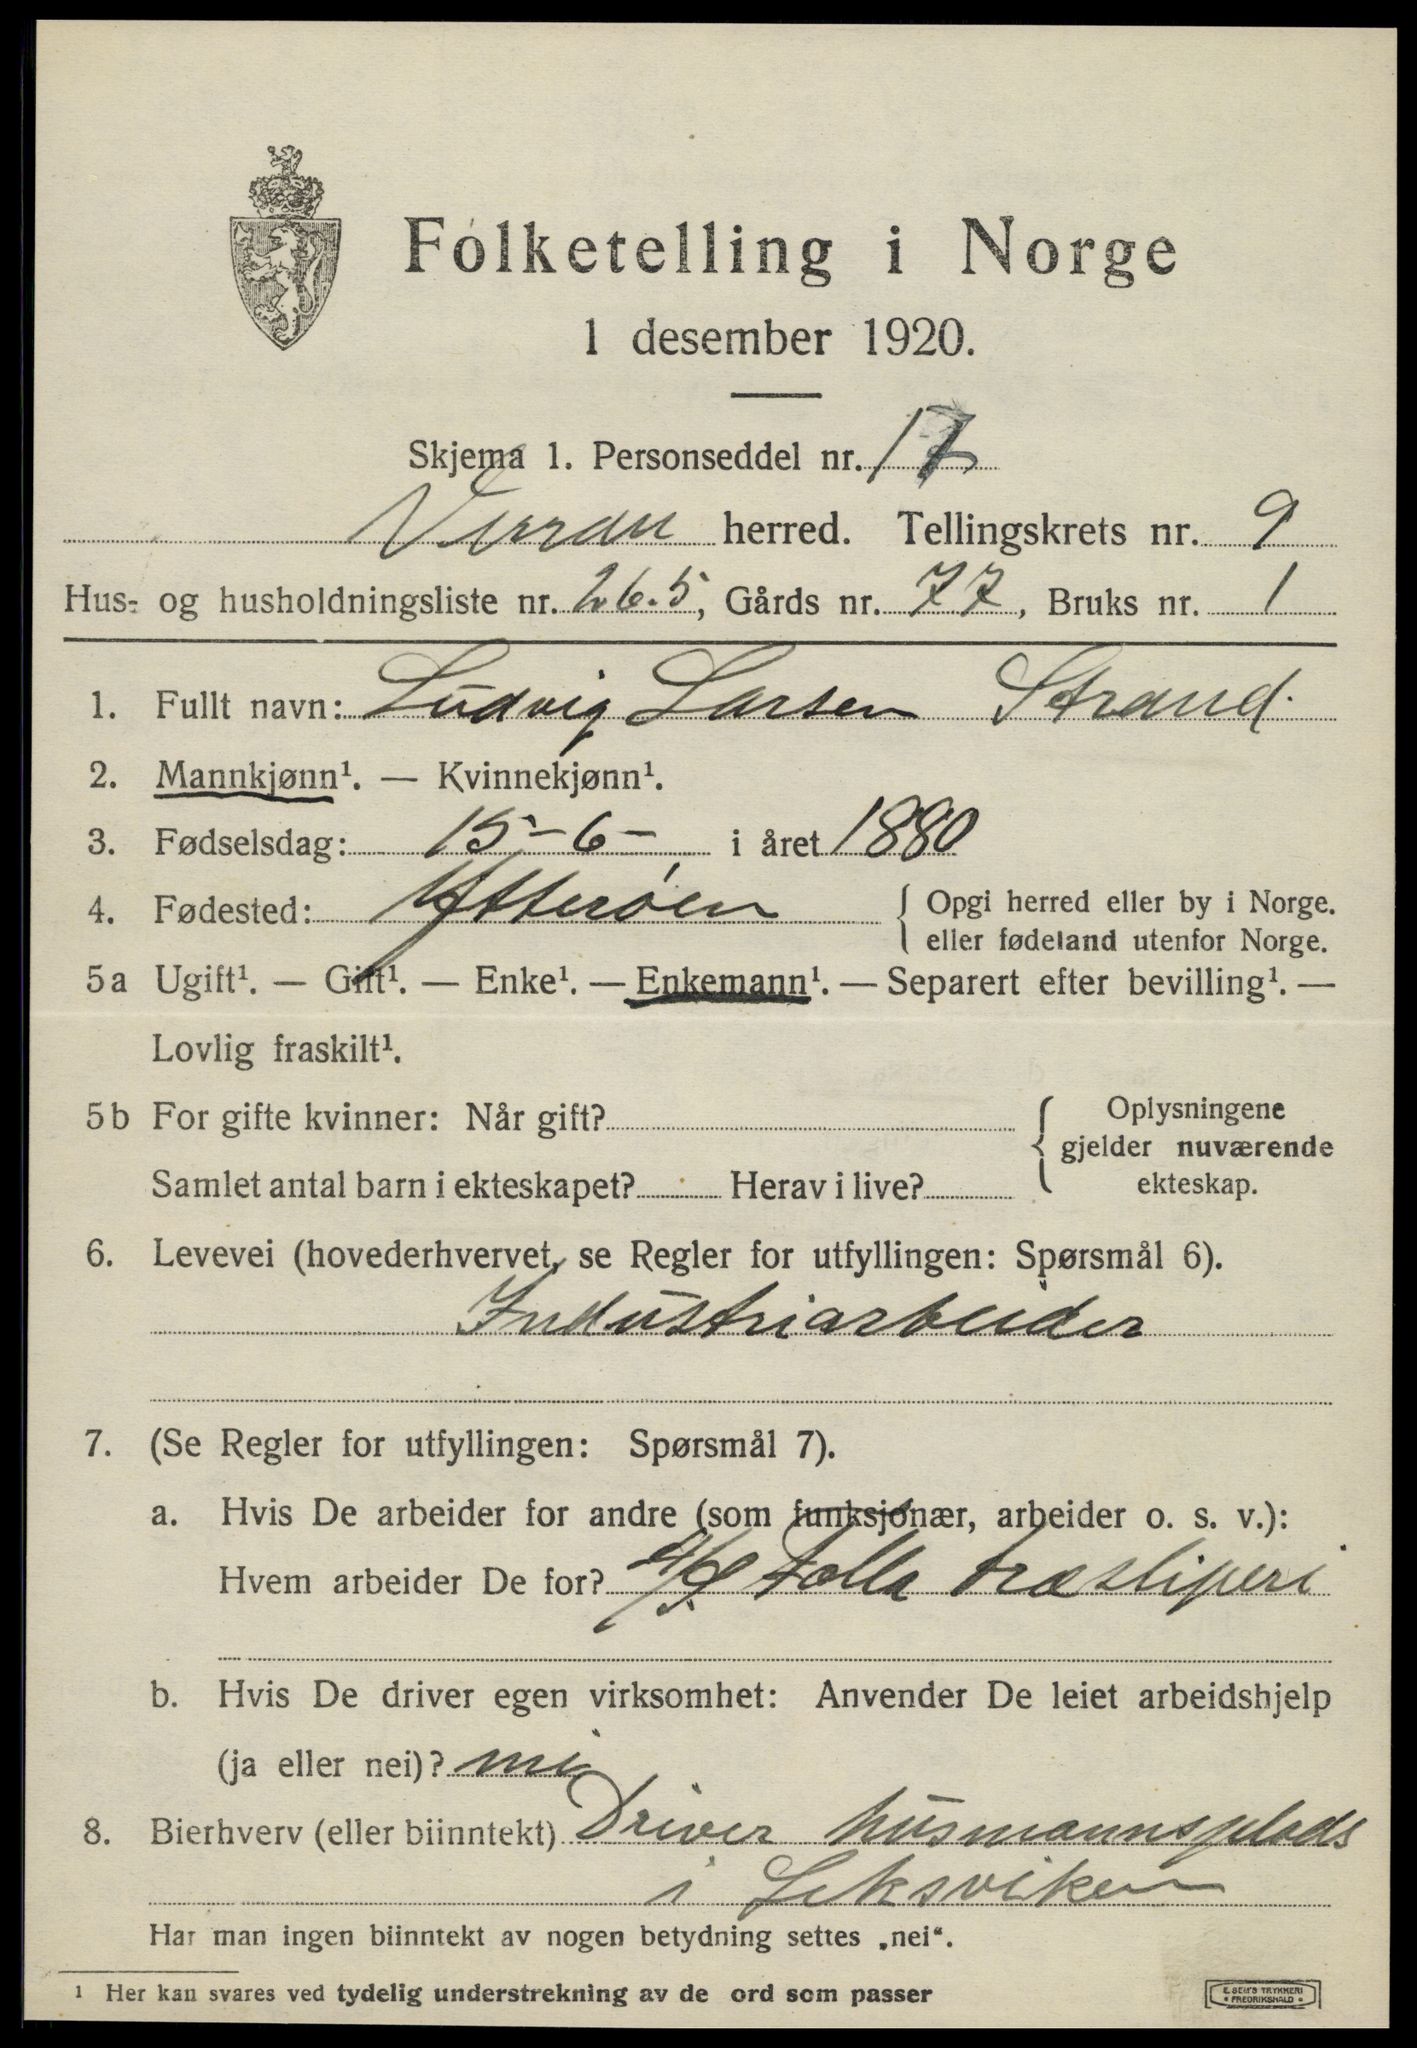 Folketelling i Norge
1 desember 1920.
Skjema 1. Personseddel nr. 17
Verran herred. Tellingskrets nr. 9
Hus- og husholdningsliste nr. 26.5, Gårds nr. 77, Bruks nr. 1
1. Fullt navn: Ludvig Larsen Strand.
2. Mannkjønn¹. — Kvinnekjønn¹.
3. Fødselsdag: 15-6- i året 1880
4. Fødested: Ytterøen { Opgi herred eller by i Norge.
eller fødeland utenfor Norge.
5a Ugift¹. — Gift¹. — Enke¹. — Enkemann¹. — Separert efter bevilling¹. —
Lovlig fraskilt¹.
5b For gifte kvinner: Når gift? { Oplysningene
gjelder nuværende
Samlet antal barn i ekteskapet? Herav i live? ekteskap.
6. Levevei (hovederhvervet, se Regler for utfyllingen: Spørsmål 6).
Industriarbeider
7. (Se Regler for utfyllingen: Spørsmål 7).
a. Hvis De arbeider for andre (som funksjonær, arbeider o. s. v.):
Hvem arbeider De for? A/S Folla træsliperi
b. Hvis De driver egen virksomhet: Anvender De leiet arbeidshjelp
(ja eller nei)? nei
8. Bierhverv (eller biinntekt) Driver husmannsplads
i Leksviken
Har man ingen biinntekt av nogen betydning settes „nei“.
1 Her kan svares ved tydelig understrekning av de ord som passer
E. SEM'S TRYKKERI
• FREDRIKSHALD •